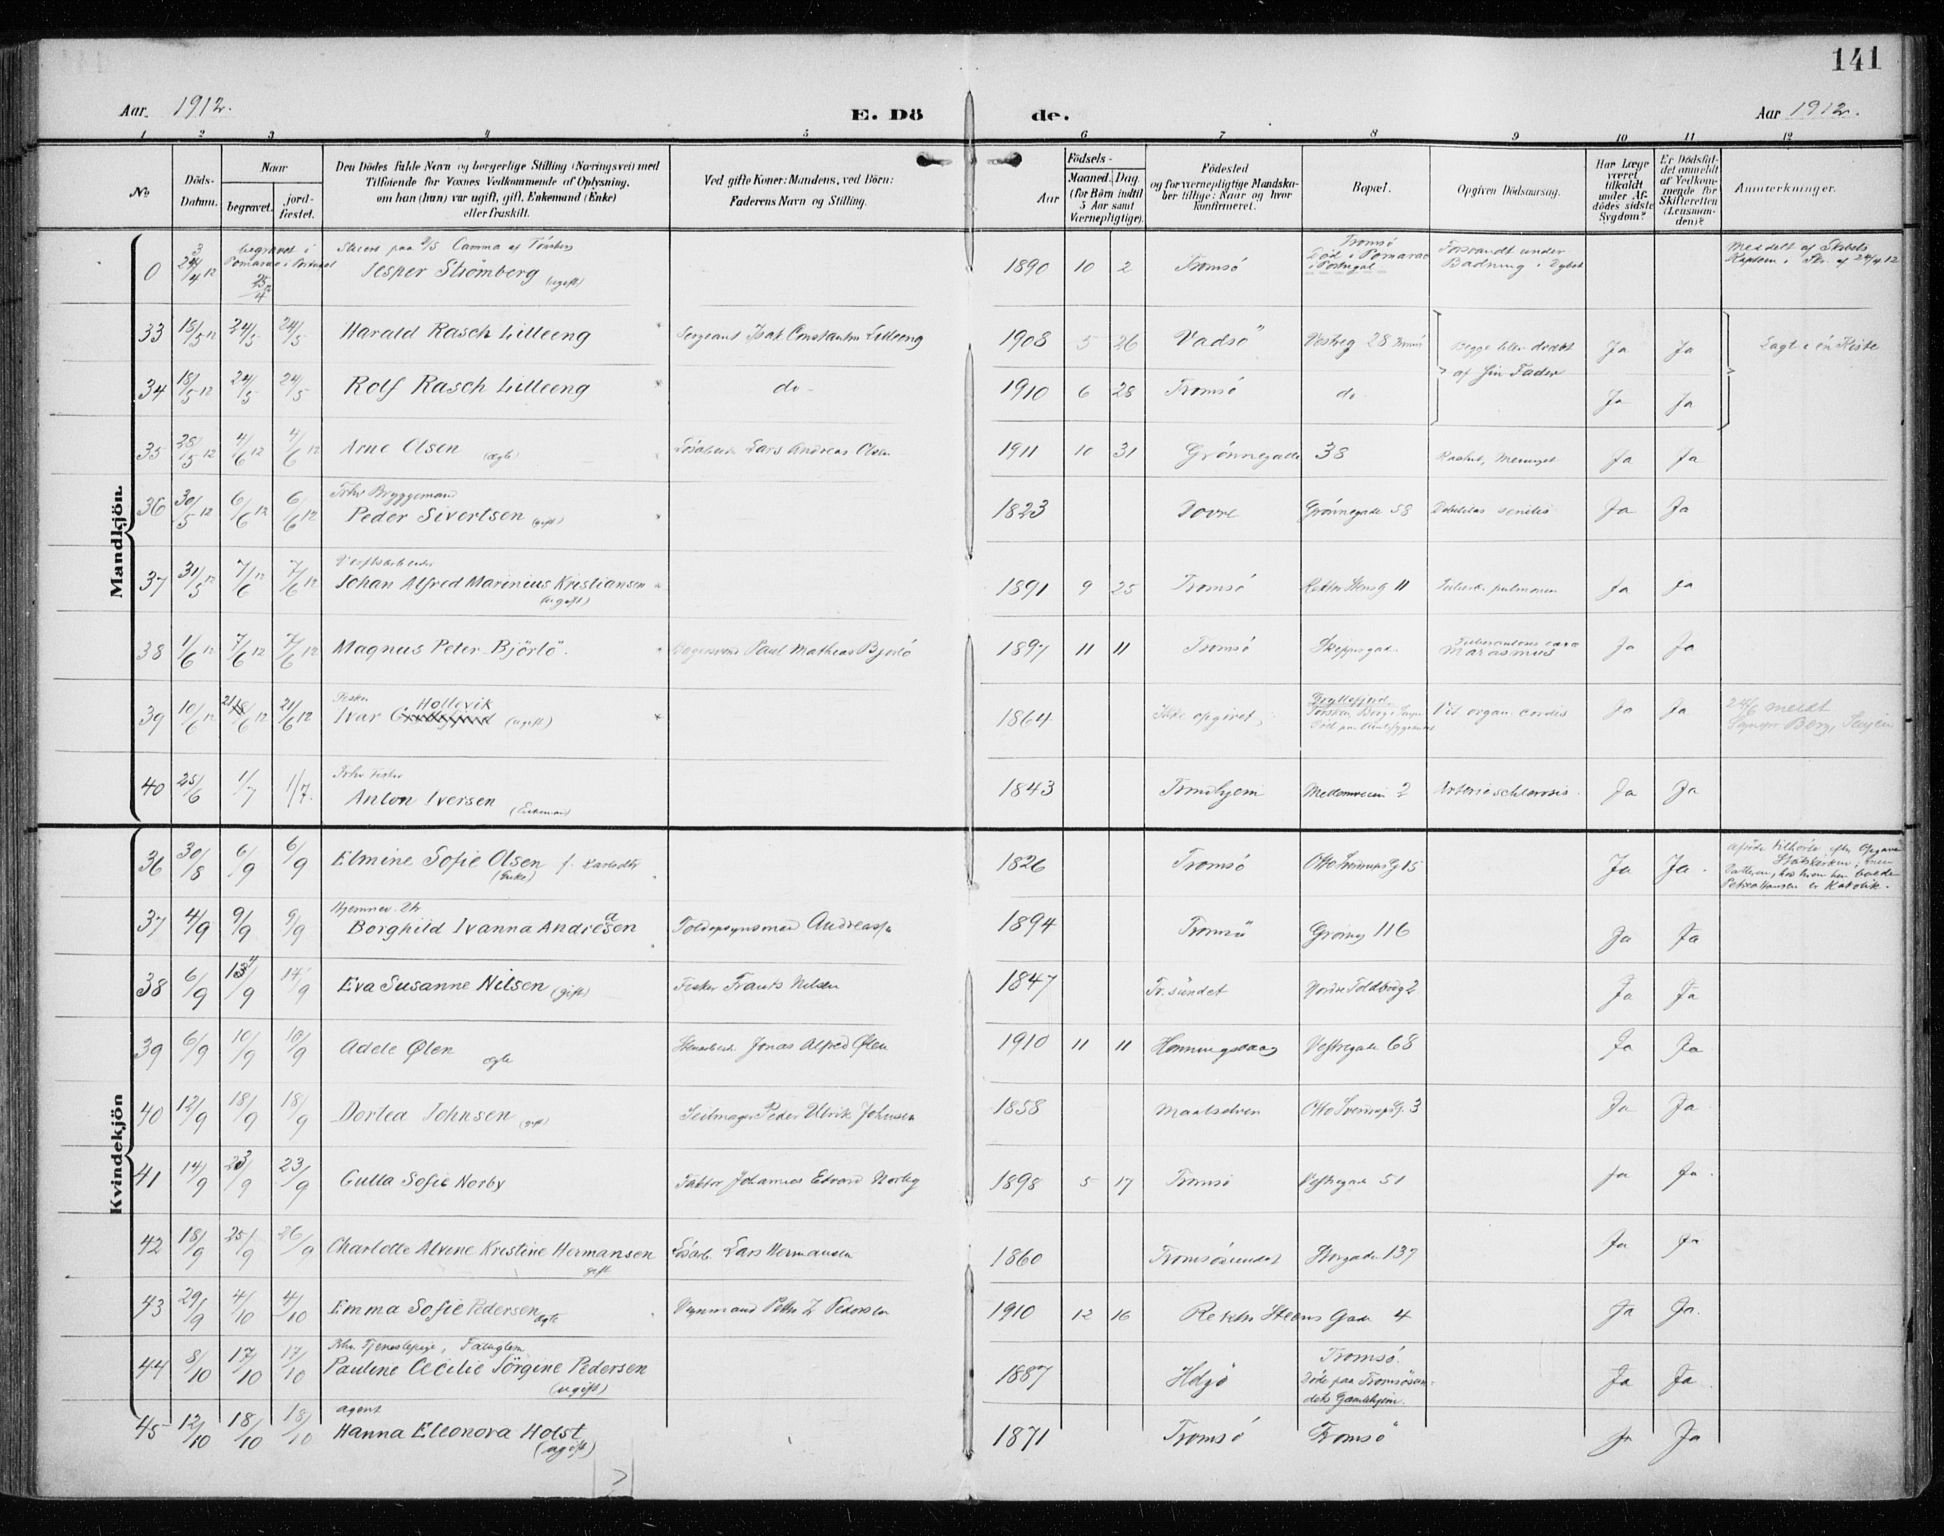 141
Aar. 1912.
E. Dö de.
Aar 1912.
1 2 3 4 5 6 7 8 9 10 11 12
No
Döds-Datum.
Naar
begravet.
jord-fæstet.
Den Dödes fulde Navn og borgerlige Stilling (Næringsvei) med
Tilföiende for Voxnes Vedkommende af Oplysning,
om han (hun) var ugift, gift, Enkemand (Enke)
eller fraskilt.
Ved gifte Koner: Mandens, ved Börn:
Faderens Navn og Stilling.
Födsels-
Aar
Maaned. Dag.
(for Börn indtil
5 Aar samt
Værnepligtige).
Födested
og for værnepligtige Mandska-
ber tillige: Naar og hvor
konfirmeret.
Bopæl.
Opgiven Dödsaarsag.
Har Læge
været
tilkaldt
under Af-
dödes sidste
Sygdom?
Er Dödsfal-
det anmeldt
af Vedkom-
mende for
Skifteretten
(Lensman-
den)?
Anmærkninger.
Mandkjön.
begravet i
Pomarao i Portugal
0 24/4 12 25/4 Jesper Strömberg (ugift) 1890 10 2 Tromsö
Tromsö
Död i Pomarao
i Portugal
Forsvandt under
Badning i
Meddelt af Skibets
Kaptein i
33 18/5 12 24/5 24/5 Harald Rasch Lilleeng Sergeant Isak Constantin Lilleeng 1908 5 26 Vadsö Vestreg 28 Ja Ja Lagt i én Kiste
34 18/5 12 24/5 24/5 Rolf Rasch Lilleeng do 1910 6 28 Tromsö do Ja Ja
Begge blev dræbt
af sin Fader
35 28/5 12 4/6 12 4/6 12 Arne Olsen (ægte) Lösarbeid Lars Andreas Olsen 1911 10 31 Grönnegade 38 Ja Ja
Fhv Bryggemand
36 30/5 12 6/6 12 6/6 12 Peder Sivertsen (gift) 1823 Dovre Grönnegade 58 Debilitas senilis Ja Ja
Verftsarbeider
37 31/5 12 7/6 12 7/6 12 Johan Alfred Marinius Kristiansen (ugift) 1891 9 25 Tromsö Rektor Stensg 11 Tuberk. pulmonum Ja Ja
38 1/6 12 7/6 12 7/6 12 Magnus Peter Björlö. Bagersvend Paul Mathias Bjorlö 1897 11 11 Tromsö Skippergade Marasmus Ja Ja
Fisker
39 10/6 12 21/6 12 21/6 12 Ivar Hollevik (ugift) 1864 Ikke opgivet Vit. organ. cordis Ja Ja
Gryllefjord
24/6 meldt
Berg, Senjen
Fhv Fisker
40 25/6 1/7 1/7. Anton Iversen (Enkemand) 1843 Trondhjem Mellemveien 2 Arterioschlerosis. Ja Ja
Kvindekjön
36 30/8 6/9 6/9 Elmine Sofie Olsen (Enke) 1826 Tromsö Otto Sverdrups G 15 Ja Ja.
afdöde tilhörte efter Opgave
Statskirken; men
Datteren, hos hvem hun boede
Petrea Hansen er Katolik.
37 4/9 9/9 9/9 Borghild Ivanna Andreasen Toldopsynsmand Andreassen 1894 Tromsö Grönneg 116 Ja Ja
38 6/9 14/9 14/9 Eva Susanne Nilsen (gift) Fisker Frants Nilsen 1847 Tr.sundet Nordre Toldbodg 2 Ja Ja
39 6/9 10/9 10/9 Adele Ølen ægte Stenarbeid Jonas Alfred Ølen 1910 11 11 Honningsvaag Vestregade 68 Ja Ja
40 12/9 18/9 18/9 Dortea Johnsen (gift) Seilmager Peder Ulrik Johnsen 1858 Maalselven Otto Sverdrups G. 3 Ja Ja
41 14/9 23/9 23/9 Gulla Sofie Norby Faktor Johannes Edvard Norby 1898 5 17 Tromsö Vestregade 51 Ja Ja.
42 18/9 25/9 26/9 Charlotte Alvine Kristine Hermansen gift Lösarb. Lars Hermansen 1860 Tromsösundet Storgade 137 Ja Ja
43 29/9 4/10 4/10 Emma Sofie Pedersen ægte Petter Z Pedersen 1910 12 16 Rektor Steens Gade 4 Ja Ja.
Fhv. Tjenestepige, Fattiglem
44 8/10 17/10 17/10 Pauline Cecilie Jörgine Pedersen (ugift) 1887 Helgö Ja Ja
Tromsö.
Döde paa Tromsösun-
dets Gamlehjem.
agent
45 12/10 18/10 18/10 Hanna Eleonora Holst (ugift) 1871 Tromsö Tromsö Ja Ja